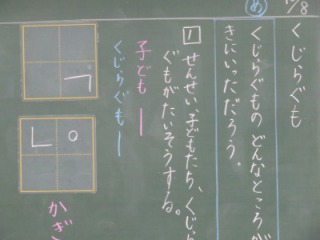 くじらぐも
め
くじらぐもの どんなところが
きにいっただろう。
1 せんせい、子どもたち、くじら
ぐもがたいそうする。
子ども
くじらぐも
かぎ